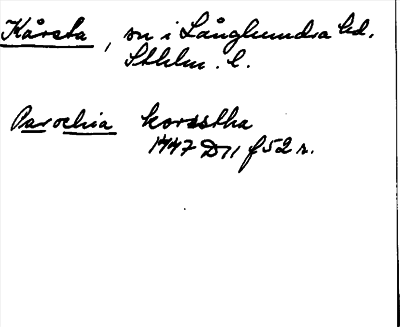 Kårsta, sn i Långhundra hd.
Sthlm. l.
Parochia korsstha
1447 D 11 f 52 r.